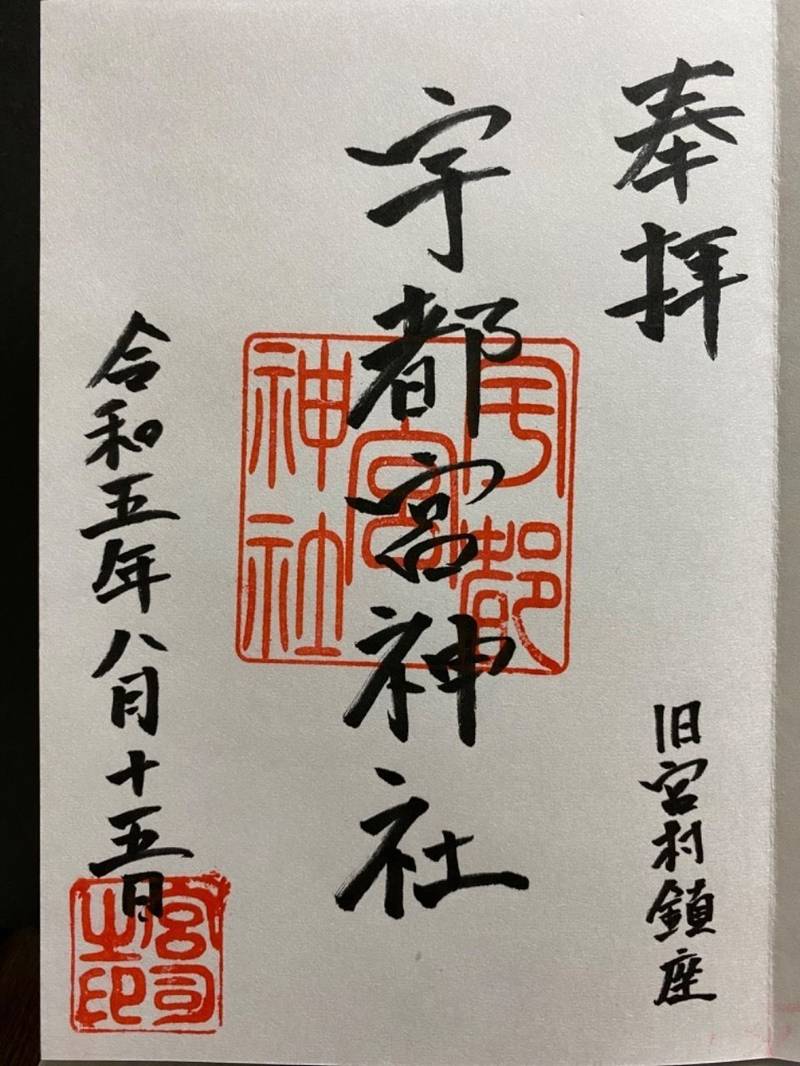 奉拝
旧宮村鎮座
宇都宮神社
宇都
宮
神社
令和五年八月十五日
宮司
之印